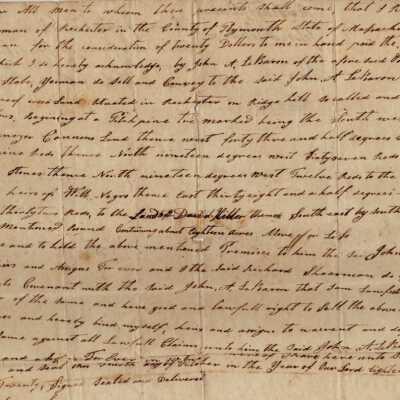 all men to whom these presents shall come, that I R
man of Rochester in the County of Plymouth State of Massach
for the consideration of twenty Dollers to me in hand paid the
which I do hereby acknowledge, by John A. LeBaron of the afore said
State, Yeoman do Sell and Convey to the said John A LeBaron
wood Land Situated in Rochester on Ridge hill so called and
begining at a Pitch pine tree marked being the South we
Land thence west forty three and half degrees
Rods thence North nineteen degrees west Sixty seven Rods
Stones thence North nineteen degrees west Twelve Rods to the
heirs of Will Negro thence East thirty eight and a half degrees
thirty two Rods, to the Land of David thence South east by South
mentioned Bound Containing about Eighteen acres More or Less
and to hold the above mentioned Premises to him the said John
and Assigns For ever and I the said Richard Shearman do
Covenant with the said John, A LeBaron that I am Lawful
of the same and have good and lawfull right to Sell the above
and hereby bind myself, heirs and assigns to warrant and de
Same against all Lawfull Claims unto him the Said John A LeB
For Ever have unto
and Seal this of October in the Year of our Lord Eighteen
Twenty, Signed Sealed and Delivered